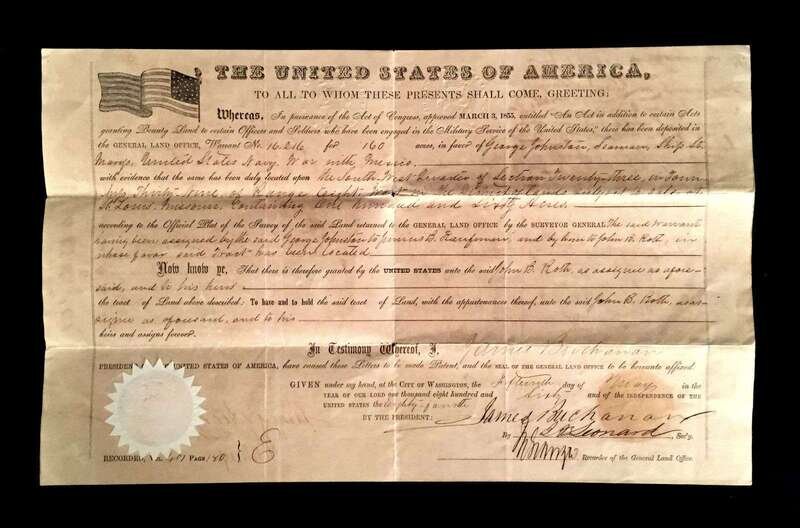 THE UNITED STATES OF AMERICA,
TO ALL TO WHOM THESE PRESENTS SHALL COME, GREETING:
Whereas, In pursuance of the Act of Congress, approved MARCH 3, 1855, entitled "An Act in addition to certain Acts
granting Bounty Land to certain Officers and Soldiers who have been engaged in the Military Service of the United States," there has been deposited in
the GENERAL LAND OFFICE, Warrant No. 16.216 for 160 acres, in favor of George Johnston, Seaman, Ship St.
Marys, United States Navy, War with Mexico
with evidence that the same has been duly located upon the South West Quarter of Section Twenty three, in Town
ship Thirty nine of Range Eight in the District of Lands subject to sale at
St. Louis, Missouri, Containing One hundred and Sixty Acres
according to the Official Plat of the Survey of the said Land returned to the GENERAL LAND OFFICE by the SURVEYOR GENERAL The said Warrant
having been assigned by the said George Johnston to B. Kauffman, and by him to John B. Roth, in
whose favor said Tract has been located
Now know ye, That there is therefore granted by the UNITED STATES unto the said John B. Roth, as assignee as afore-
said, and to his heirs
the tract of Land above described: To have and to hold the said tract of Land, with the appurtenances thereof, unto the said John B. Roth, as as-
signee as aforesaid, and to his
heirs and assigns forever.
In Testimony Whereof, I, James Buchanan
PRESIDENT UNITED STATES OF AMERICA, have caused these Letters to be made Patent, and the SEAL OF THE GENERAL LAND OFFICE to be hereunto affixed.
GIVEN under my hand, at the CITY OF WASHINGTON, the fifteenth day of May in the
YEAR OF OUR LORD one thousand eight hundred and Sixty and of the INDEPENDENCE OF THE
UNITED STATES the Eighty fourth
BY THE PRESIDENT: James Buchanan
By Leonard, Sec'y.
Recorder of the General Land Office.
RECORDED, VOL. 401 PAGE 180 E